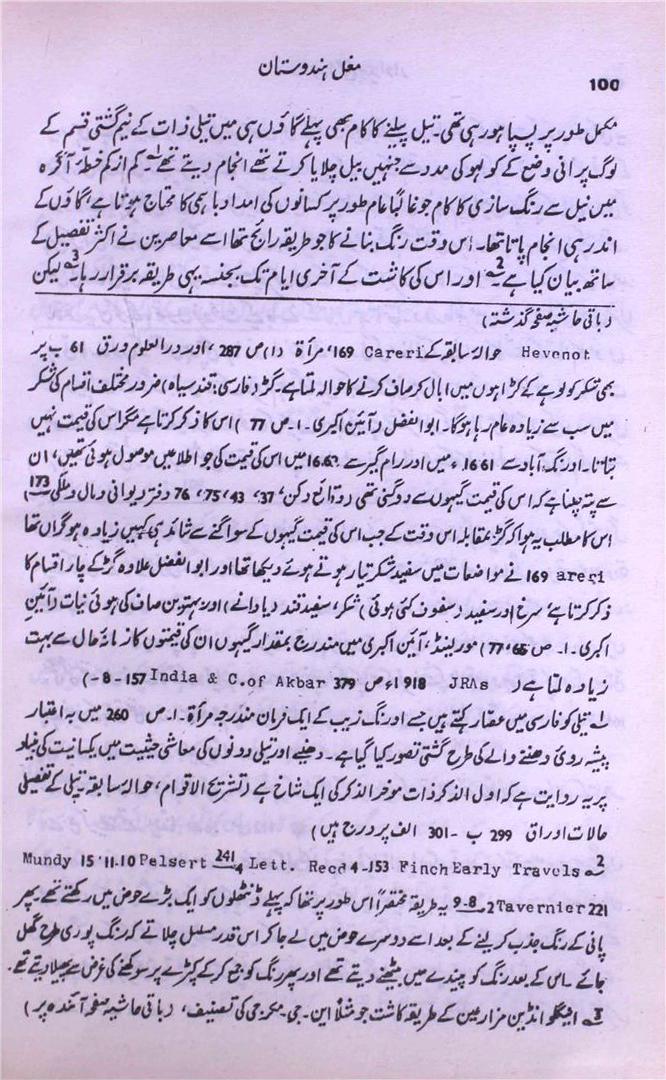 مغل ہندوستان
100
مکمل طور پر پسپا ہو رہی تھی۔ تیل پیلنے کا کام بھی پہلے گاؤں ہی میں تیلی ذات کے نیم گشتی قسم کے
لوگ پرانی وضع کے کولہو کی مدد سے جنہیں بیل چلایا کرتے تھے انجام دیتے تھے۔ کم از کم خطۂ آگرہ
میں نیل سے رنگ سازی کا کام جو غالباً عام طور پر کسانوں کی امداد باہمی کا محتاج ہوتا ہے، گاؤں کے
اندر ہی انجام پاتا تھا۔ اس وقت رنگ بنانے کا جو طریقہ رائج تھا اسے معاصرین نے اکثر تفصیل کے
ساتھ بیان کیا ہے 2 اور اس کی کاشت کے آخری ایام تک بجنسہ یہی طریقہ برقرار رہا 3 لیکن
(باقی حاشیہ صفحہ گذشتہ)
Hevenot حوالہ سابقہ کے Careri 169، مرأۃ (د) ص 287، اور درالعلوم ورق 61 ب پر
بھی شکر کو لوہے کے کڑاہوں میں ابال کر صاف کرنے کا حوالہ ملتا ہے۔ گڑ (فارسی: قند سیاہ) ضرور مختلف اقسام کی شکر
میں سب سے زیادہ عام رہا ہوگا۔ ابوالفضل (آئین اکبری۔ ا۔ ص 77) اس کا ذکر کرتا ہے مگر اس کی قیمت نہیں
بتاتا۔ اورنگ آباد سے 1661ء میں اور رام گیر سے 1662 میں اس کی قیمت کی جو اطلاعیں موصول ہوئی تھیں، ان
سے پتہ چلتا ہے کہ اس کی قیمت گیہوں سے دوگنی تھی (وقائع دکن، 37، 43، 75، 76 دفتر دیوانی و مال و ملکی 173)
اس کا مطلب یہ ہوا کہ گڑ بمقابلہ اس وقت کے جب اس کی قیمت گیہوں کے سوا گنے سے شاذ ہی کہیں زیادہ ہو گراں تھا
areri 169 نے مواضعات میں سفید شکر تیار ہوتے ہوئے دیکھا تھا اور ابوالفضل علاوہ گڑ کے چار اقسام کا
ذکر کرتا ہے، سرخ اور سفید (سفوف کئی ہوئی) شکر، سفید قند (یا دانے) اور بہترین صاف کی ہوئی نبات (آئین
اکبری۔ ا۔ ص 65، 77) مورلینڈ، آئین اکبری میں مندرج بمقدار گیہوں ان کی قیمتوں کا زمانۂ حال سے بہت
زیادہ ملتا ہے (JRAs 1918ء ص 379 India & C.of Akbar 157-8-)
1 تیلی کو فارسی میں عصار کہتے ہیں جسے اورنگ زیب کے ایک فرمان مندرجہ مرأۃ۔ ا۔ ص 260 میں بہ اعتبار
پیشہ روئی دھننے والے کی طرح گشتی تصور کیا گیا ہے۔ دھنیے اور تیلی دونوں کی معاشی حیثیت میں یکسانیت کی بنیاد
پر یہ روایت ہے کہ اول الذکر ذات موخر الذکر کی ایک شاخ ہے (تشریح الاقوام، حوالہ سابقہ تیلی کے تفصیلی
حالات اوراق 299 ب -301 الف پر درج ہیں)
2 Mundy 15'11.10 Pelsert 241/4 Lett. Recd 4-153 Finch Early Travels
Tavernier 221 2 8-9 یہ طریقہ مختصراً اس طور پر تھا کہ پہلے ڈنٹھلوں کو ایک بڑے حوض میں رکھتے تھے پھر
پانی کے رنگ جذب کر لینے کے بعد اسے دوسرے حوض میں لے جا کر اس قدر مسلسل چلاتے کہ رنگ پوری طرح گھل
جائے۔ اس کے بعد رنگ کو پیندے میں بیٹھنے دیتے تھے اور پھر رنگ کو جمع کر کے کپڑے پر سوکھنے کی غرض سے پھیلا دیتے تھے۔
3 اینگلو انڈین مزارعین کے طریقہ کاشت جو مثلاً این۔ جی۔ مکرجی کی تصنیف، (باقی حاشیہ صفحہ آئندہ پر)